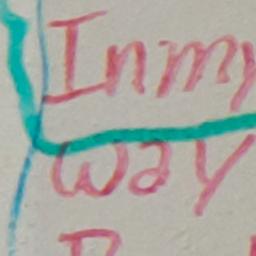 In my
way